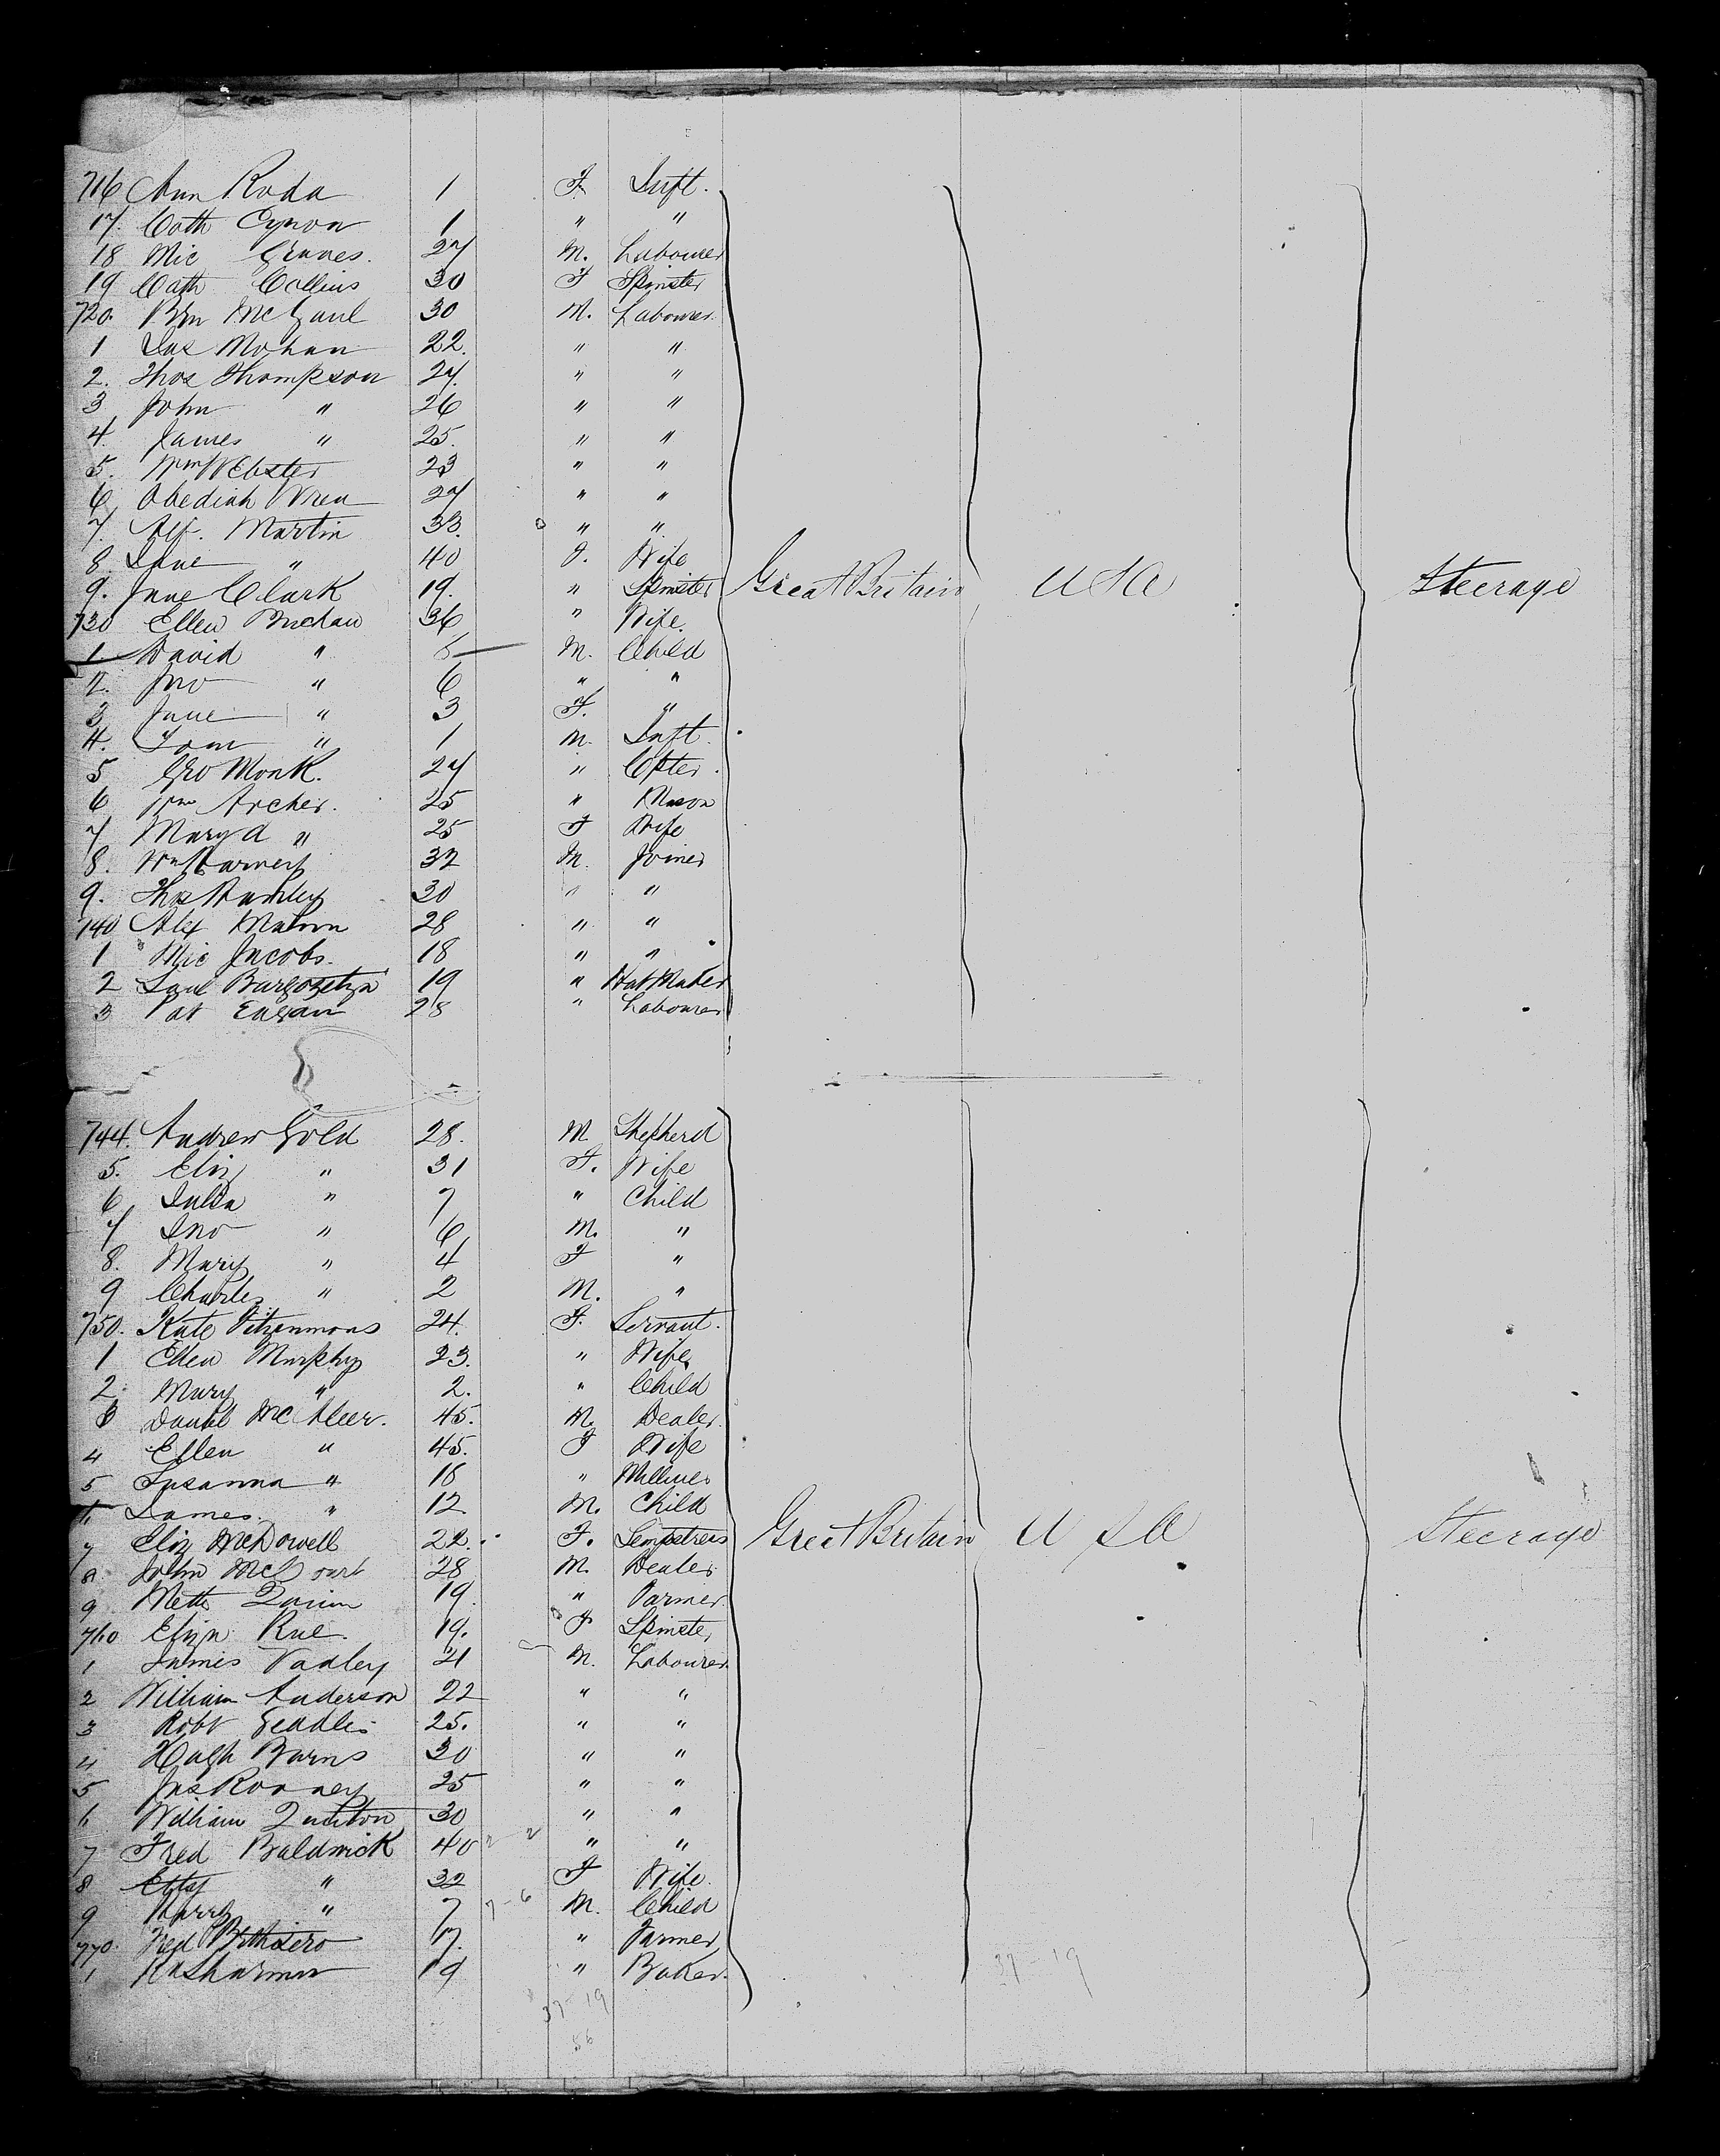 716 Ann Roda 1 F. Inft.
17. Cath Cynon 1 " "
18 Mic Graves. 27 M. Labourer
19 Cath Collins 30 F Spinster
720. Bm McGaul 30 M. Labourer.
1 Jas Mohan 22. " "
2. Thos Thompson 27. " "
3 John " 26 " "
4. James " 25. " "
5. Wm Webster 23 " "
6 Obediah Wren 27 " "
7. Alf. Martin 33. " "
8. Jane " 40 F. Wife
9. Jane Clark 19. " Spinster Great Britain USA Steerage
730 Ellen Buchan 36 " Wife.
1. David " 8 M. Child
2. Jno " 6 " "
3 Jane " 3 F. "
4. Tom " 1 M. Inft.
5 Geo Monk. 27 " 
6 Wm Archer. 25 " Mason
7 Mary A " 25 F Wife
8. Wm Harvey 32 M. Joiner
9. Thos 30 " "
740 Alex 28 " "
1 Mic Jacobs. 18 " "
2 19 " Hat Maker
3 Pat Eagan 28 " Labourer
744. Andrew Gold 28. M Shepherd
5. Eliz " 31 F. Wife
6 Julia " 7 " Child
7 Jno " 6 M. "
8. Mary " 4 F "
9 Charles " 2 M. "
750. Kate Fitzsimmons 24. F. Servant.
1 Ellen Murphy 23. " Wife
2. Mary " 2. " Child
3 Daniel McAleer. 45. M. Dealer.
4 Ellen " 45. F Wife
5 Susanna " 16 " Milliner
6. James. " 12. M. Child
7 Eliz McDowell 22. F. Sempstress Great Britain USA Steerage
8 John McCourt 28 M. Dealer.
9 Matt Quinn 19. " Farmer.
760 Eliza Rue. 19. F Spinster
1 James Vadley 21 M. Labourer.
2 William Anderson 22 " "
3 Robt Geddis 25. " "
4 Hugh Burns 30 " "
5 Jas Rooney 25 " "
6 William Quinton 30 " "
7 Fred Baldwick 40 " "
8 Etty " 32 F Wife.
9 Harry " 7 7-6 M. Child
770. Fred 17. " Farmer
1 19 " Baker.
37-19
37-19
56